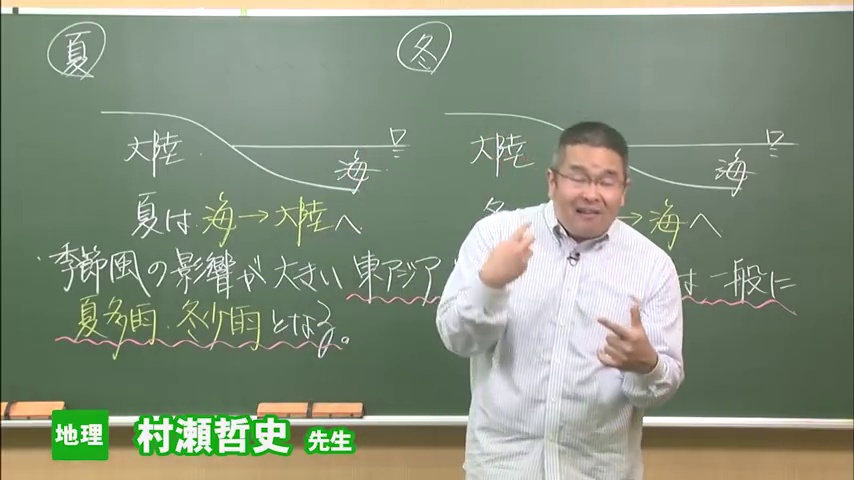 夏
冬
大陸
海
大陸
海
夏は 海→大陸へ
冬 →海へ
季節風の影響が大きい 東アジア は一般に
夏多雨、冬少雨となる。
地理 村瀬哲史 先生